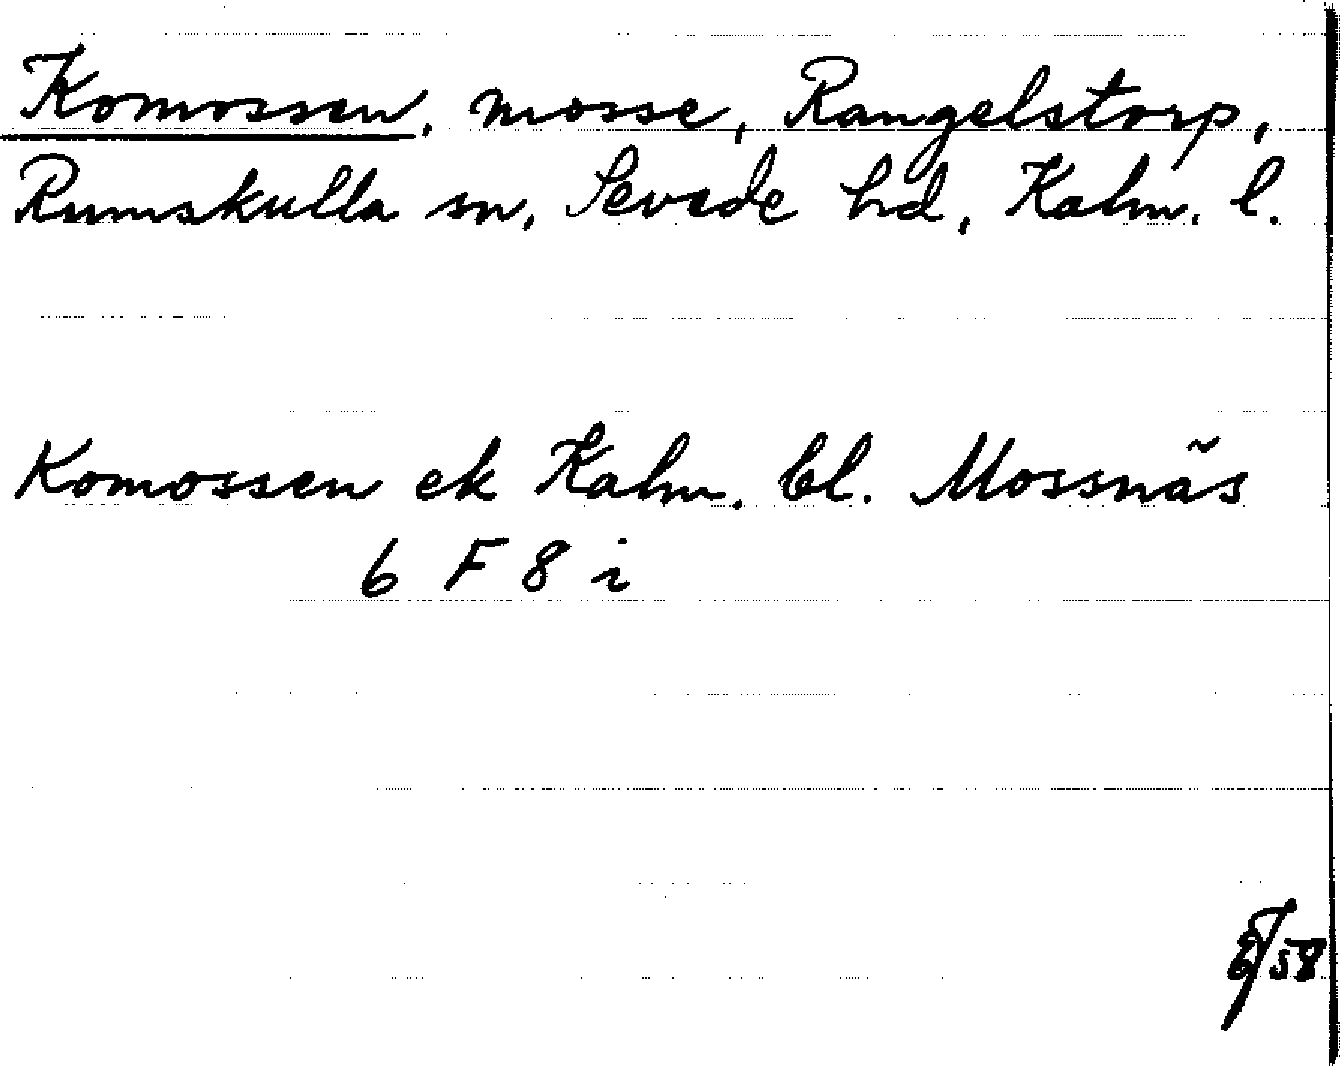 Komossen, mosse, Rangelstorp,
Rumskulla sn, Sevede hd, Kalm. l.
Komossen ek Kalm. bl. Mossnäs
6 F 8 i
58